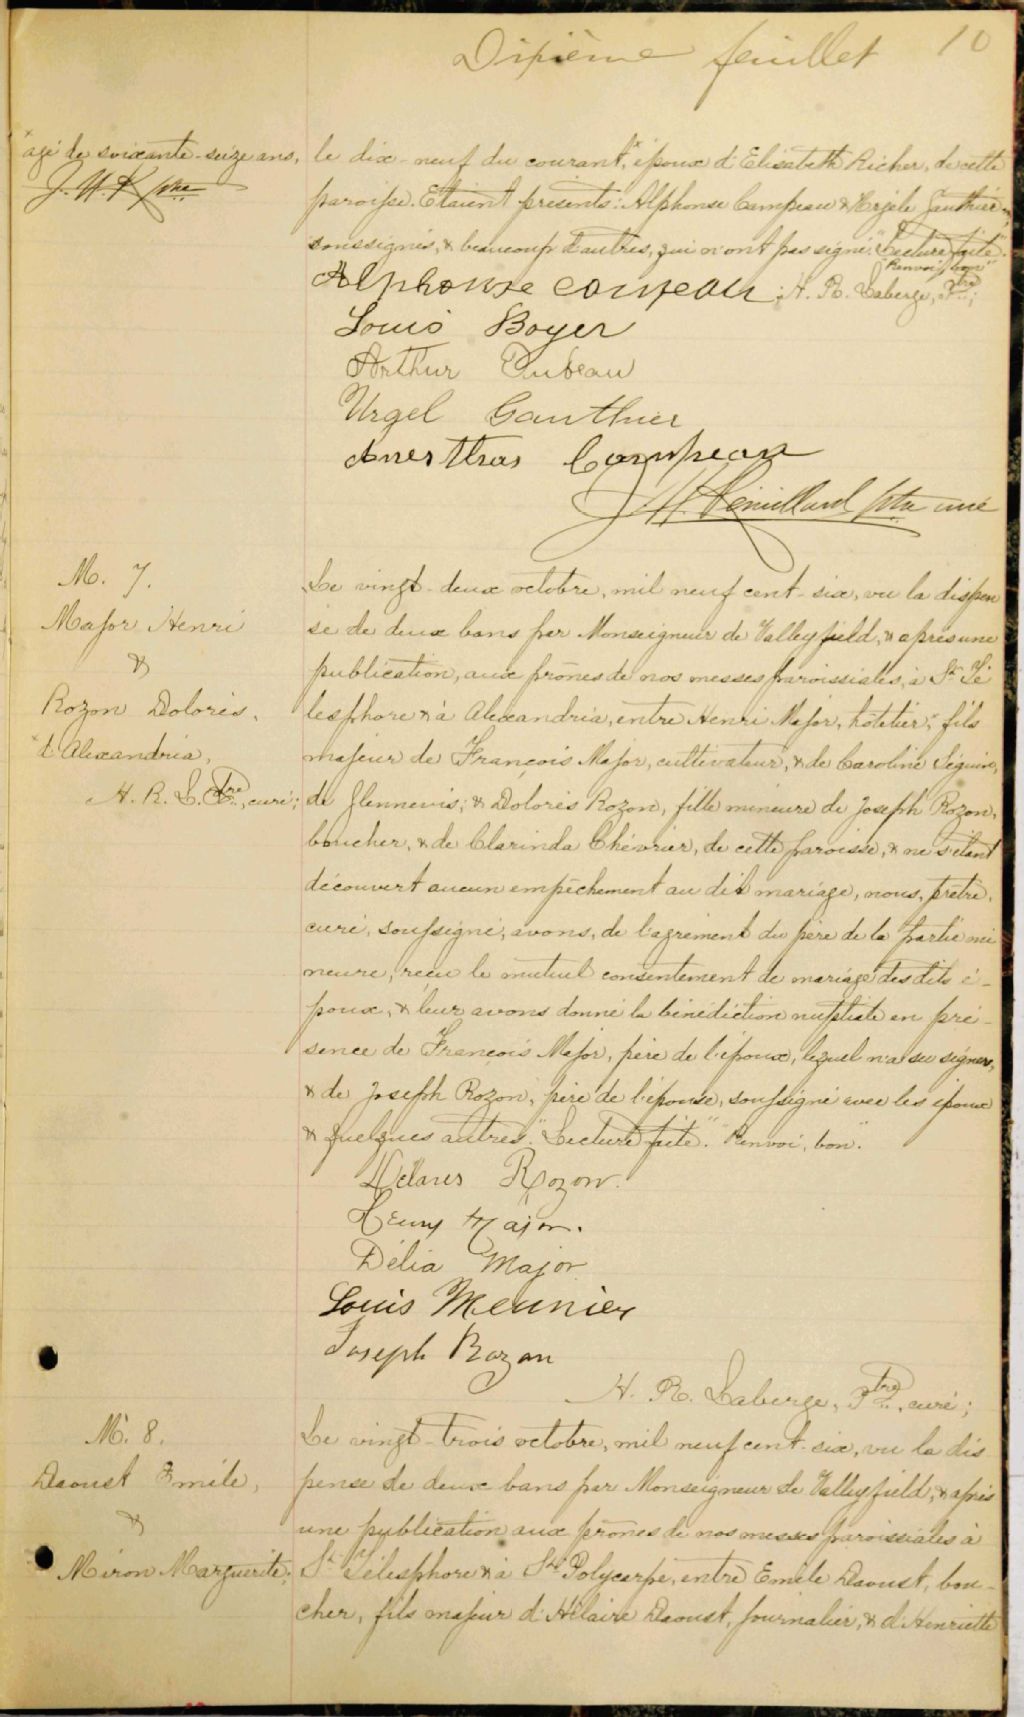 Dixième feuillet 10
x agé de soixante-seize ans,
le dix-neuf du courant,x époux d'Elisabeth Richer, de cette
paroisse. Etaient présents: Alphonse Campeau & Urgèle Gauthier
soussignés, & beaucoup d'autres, qui n'ont pas signé. "Lecture faite".
"Renvoi, bon"
Alphonse Campeau; H. R. Laberge, Ptre;
Louis Boyer
Arthur Dubeau
Urgel Gauthier
Campeau
ptre curé
M. 7.
Major Henri
&
Rozon Dolorès.
x d'Alexandria,
H. R. L. Ptre, curé;
Le vingt-deux octobre, mil neuf cent-six, vu la dispen
se de deux bans par Monseigneur de Valleyfield, & après une
publication, aux prônes de nos messes paroissiales, à St. Té
lesphore & à Alexandria, entre Henri Major, hôtelier,x fils
majeur de François Major, cultivateur, & de Caroline Séguin,
de Glennevis; & Dolorès Rozon, fille mineure de Joseph Rozon,
boucher, & de Clarinda Chévrier, de cette paroisse, & ne s'étant
découvert aucun empêchement au dit mariage, nous, prêtre,
curé, soussigné, avons, de l'agrément du père de la partie mi
neure, reçu le mutuel consentement de mariage des dits é-
poux, & leur avons donné la bénédiction nuptiale en pré-
sence de François Major, père de l'époux, lequel n'a su signer,
& de Joseph Rozon, père de l'épouse, soussigné avec les époux
& quelques autres. "Lecture faite". "Renvoi, bon".
Rozon.
Henry Major.
Délia Major
Louis Meunier
Joseph Rozon
H. R. Laberge, Ptre, curé;
M. 8.
Daoust Emile,
&
Miron Marguerite;
Le vingt-trois octobre, mil neuf cent-six, vu la dis
pense de deux bans par Monseigneur de Valleyfield, & après
une publication aux prônes de nos messes paroissiales à
St. Télesphore & à St. Polycarpe, entre Emile Daoust, bou-
cher, fils majeur d'Hilaire Daoust, journalier, & d'Henriette